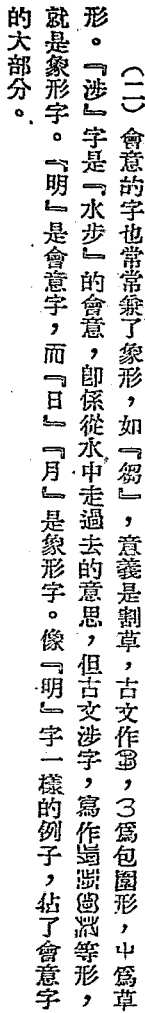 (二)會意的字也常常兼了象形,如『芻』,意義是割草,古文作,爲包圍形,屮爲草
形。『涉』字是『水步』的會意,卽係從水中走過去的意思,但古文涉字,寫作等形,
就是象形字。『明』是會意字,而『日』『月』是象形字。像『明』字一樣的例子,佔了會意字
的大部分。